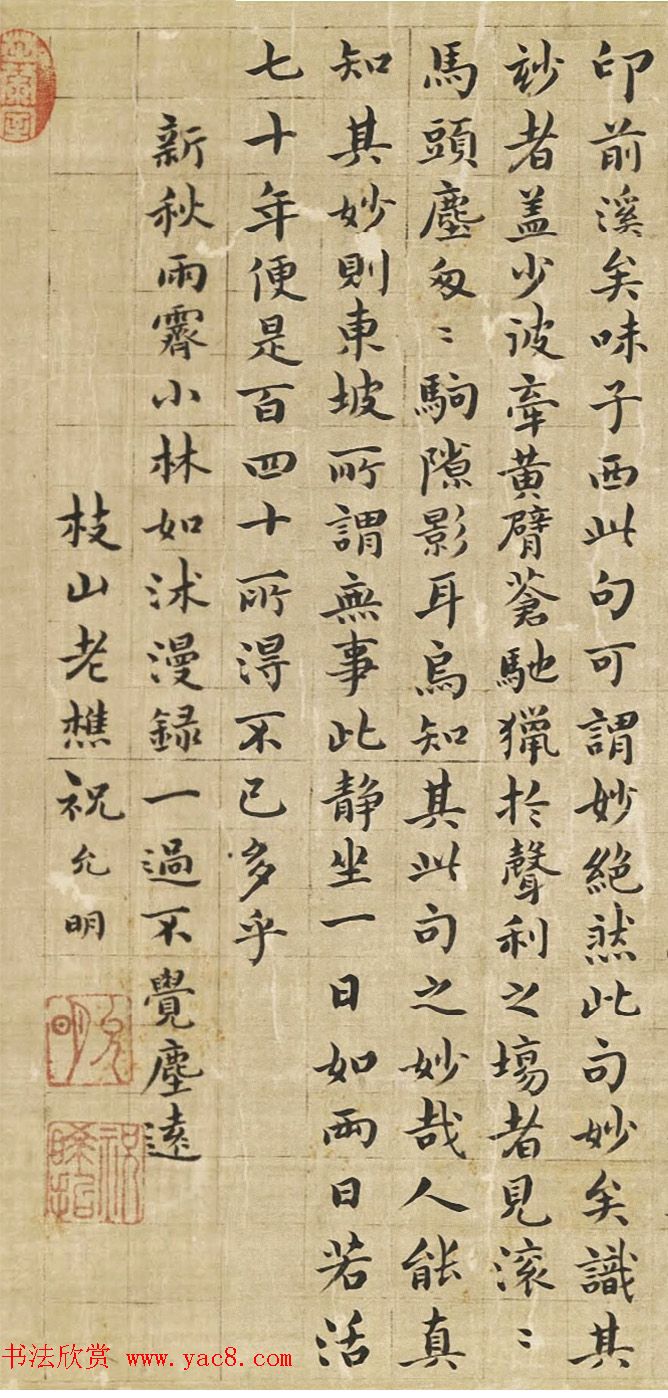 印前溪矣味子西此句可謂妙絶然此句妙矣識其
妙者盖少彼牽黄臂蒼馳獵扵聲利之塲者見滚〻
馬頭塵匆〻駒隙影耳烏知其此句之妙哉人能真
知其妙則東坡所謂無事此静坐一日如兩日若活
七十年便是百四十所得不已多乎
新秋雨霽小林如沭漫録一過不覺塵遠
枝山老樵祝允明
允明
书法欣赏 www.yac8.com